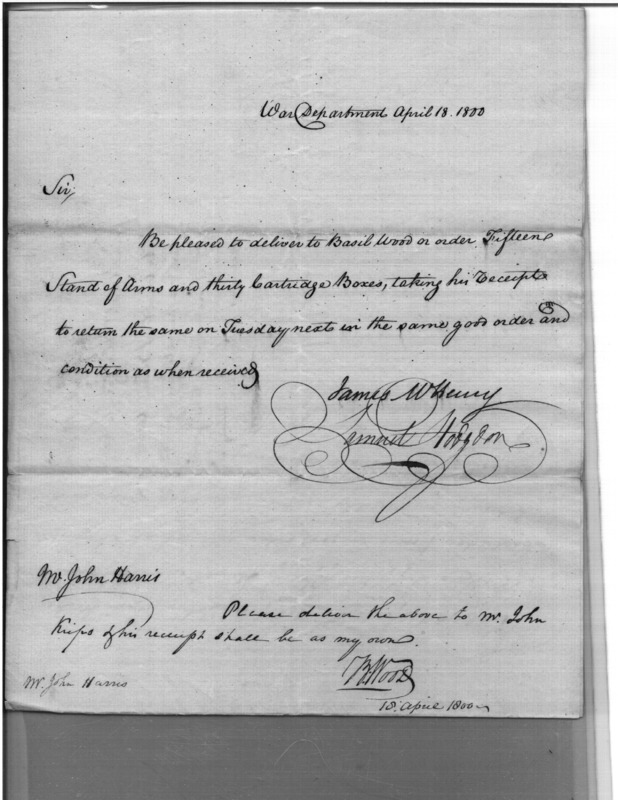 War Department April 18. 1800
Sir,
Be pleased to deliver to Basil Wood or order Fifteen
Stand of Arms and thirty Cartridge Boxes, taking his Receipt
to return the same on Tuesday next in the same good order and
condition as when received
James McHenry
Samuel Hodgdon
Mr. John Harris
Please deliver the above to Mr. John
& his receipt shall be as my own.
B Wood
18. April 1800
Mr. John Harris